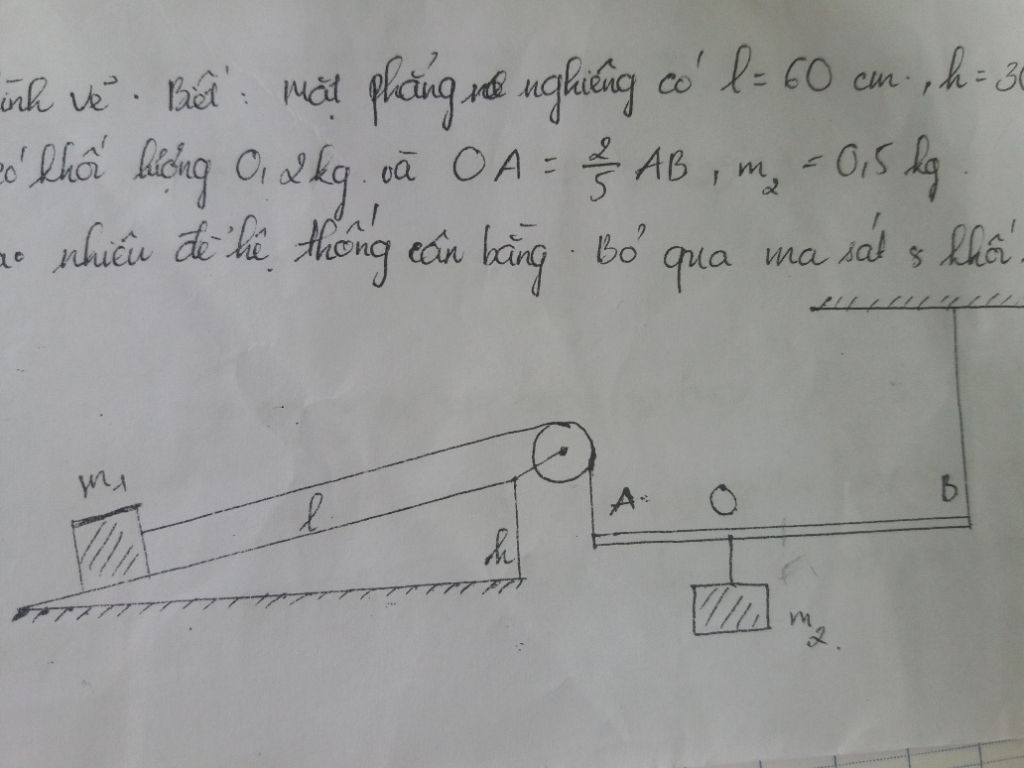 hình vẽ. Biết: mặt phẳng nghiêng có l = 60 cm, h = 30
có khối lượng 0,2kg và OA = 2/5 AB, m₂ = 0,5 kg.
nhiêu để hệ thống cân bằng. Bỏ qua ma sát & khối
m₁
l
h
A
O
B
m₂.